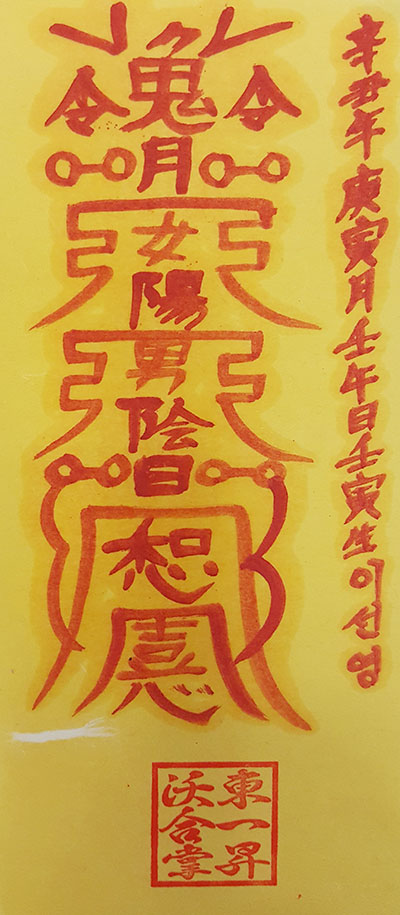 辛丑年庚寅月壬午日壬寅生이선영
令鬼令
月
女
陽
男
陰
日
想
憙
東一昇
沃合掌